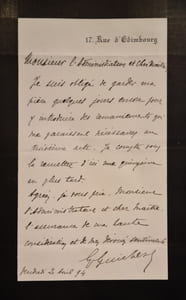 17, Rue d'Édimbourg
Monsieur l'Administrateur et cher Maître
Je suis obligé de garder ma
pièce quelques jours encore pour
y introduire des remaniements qui
me paraissent nécessaires au
troisième acte. Je compte vous
la remettre d'ici une quinzaine
au plus tard.
Agréez, je vous prie, Monsieur
l'Administrateur et cher Maître
l'assurance de ma haute
considération et de mes dévoués sentiments
Vendredi 2 94